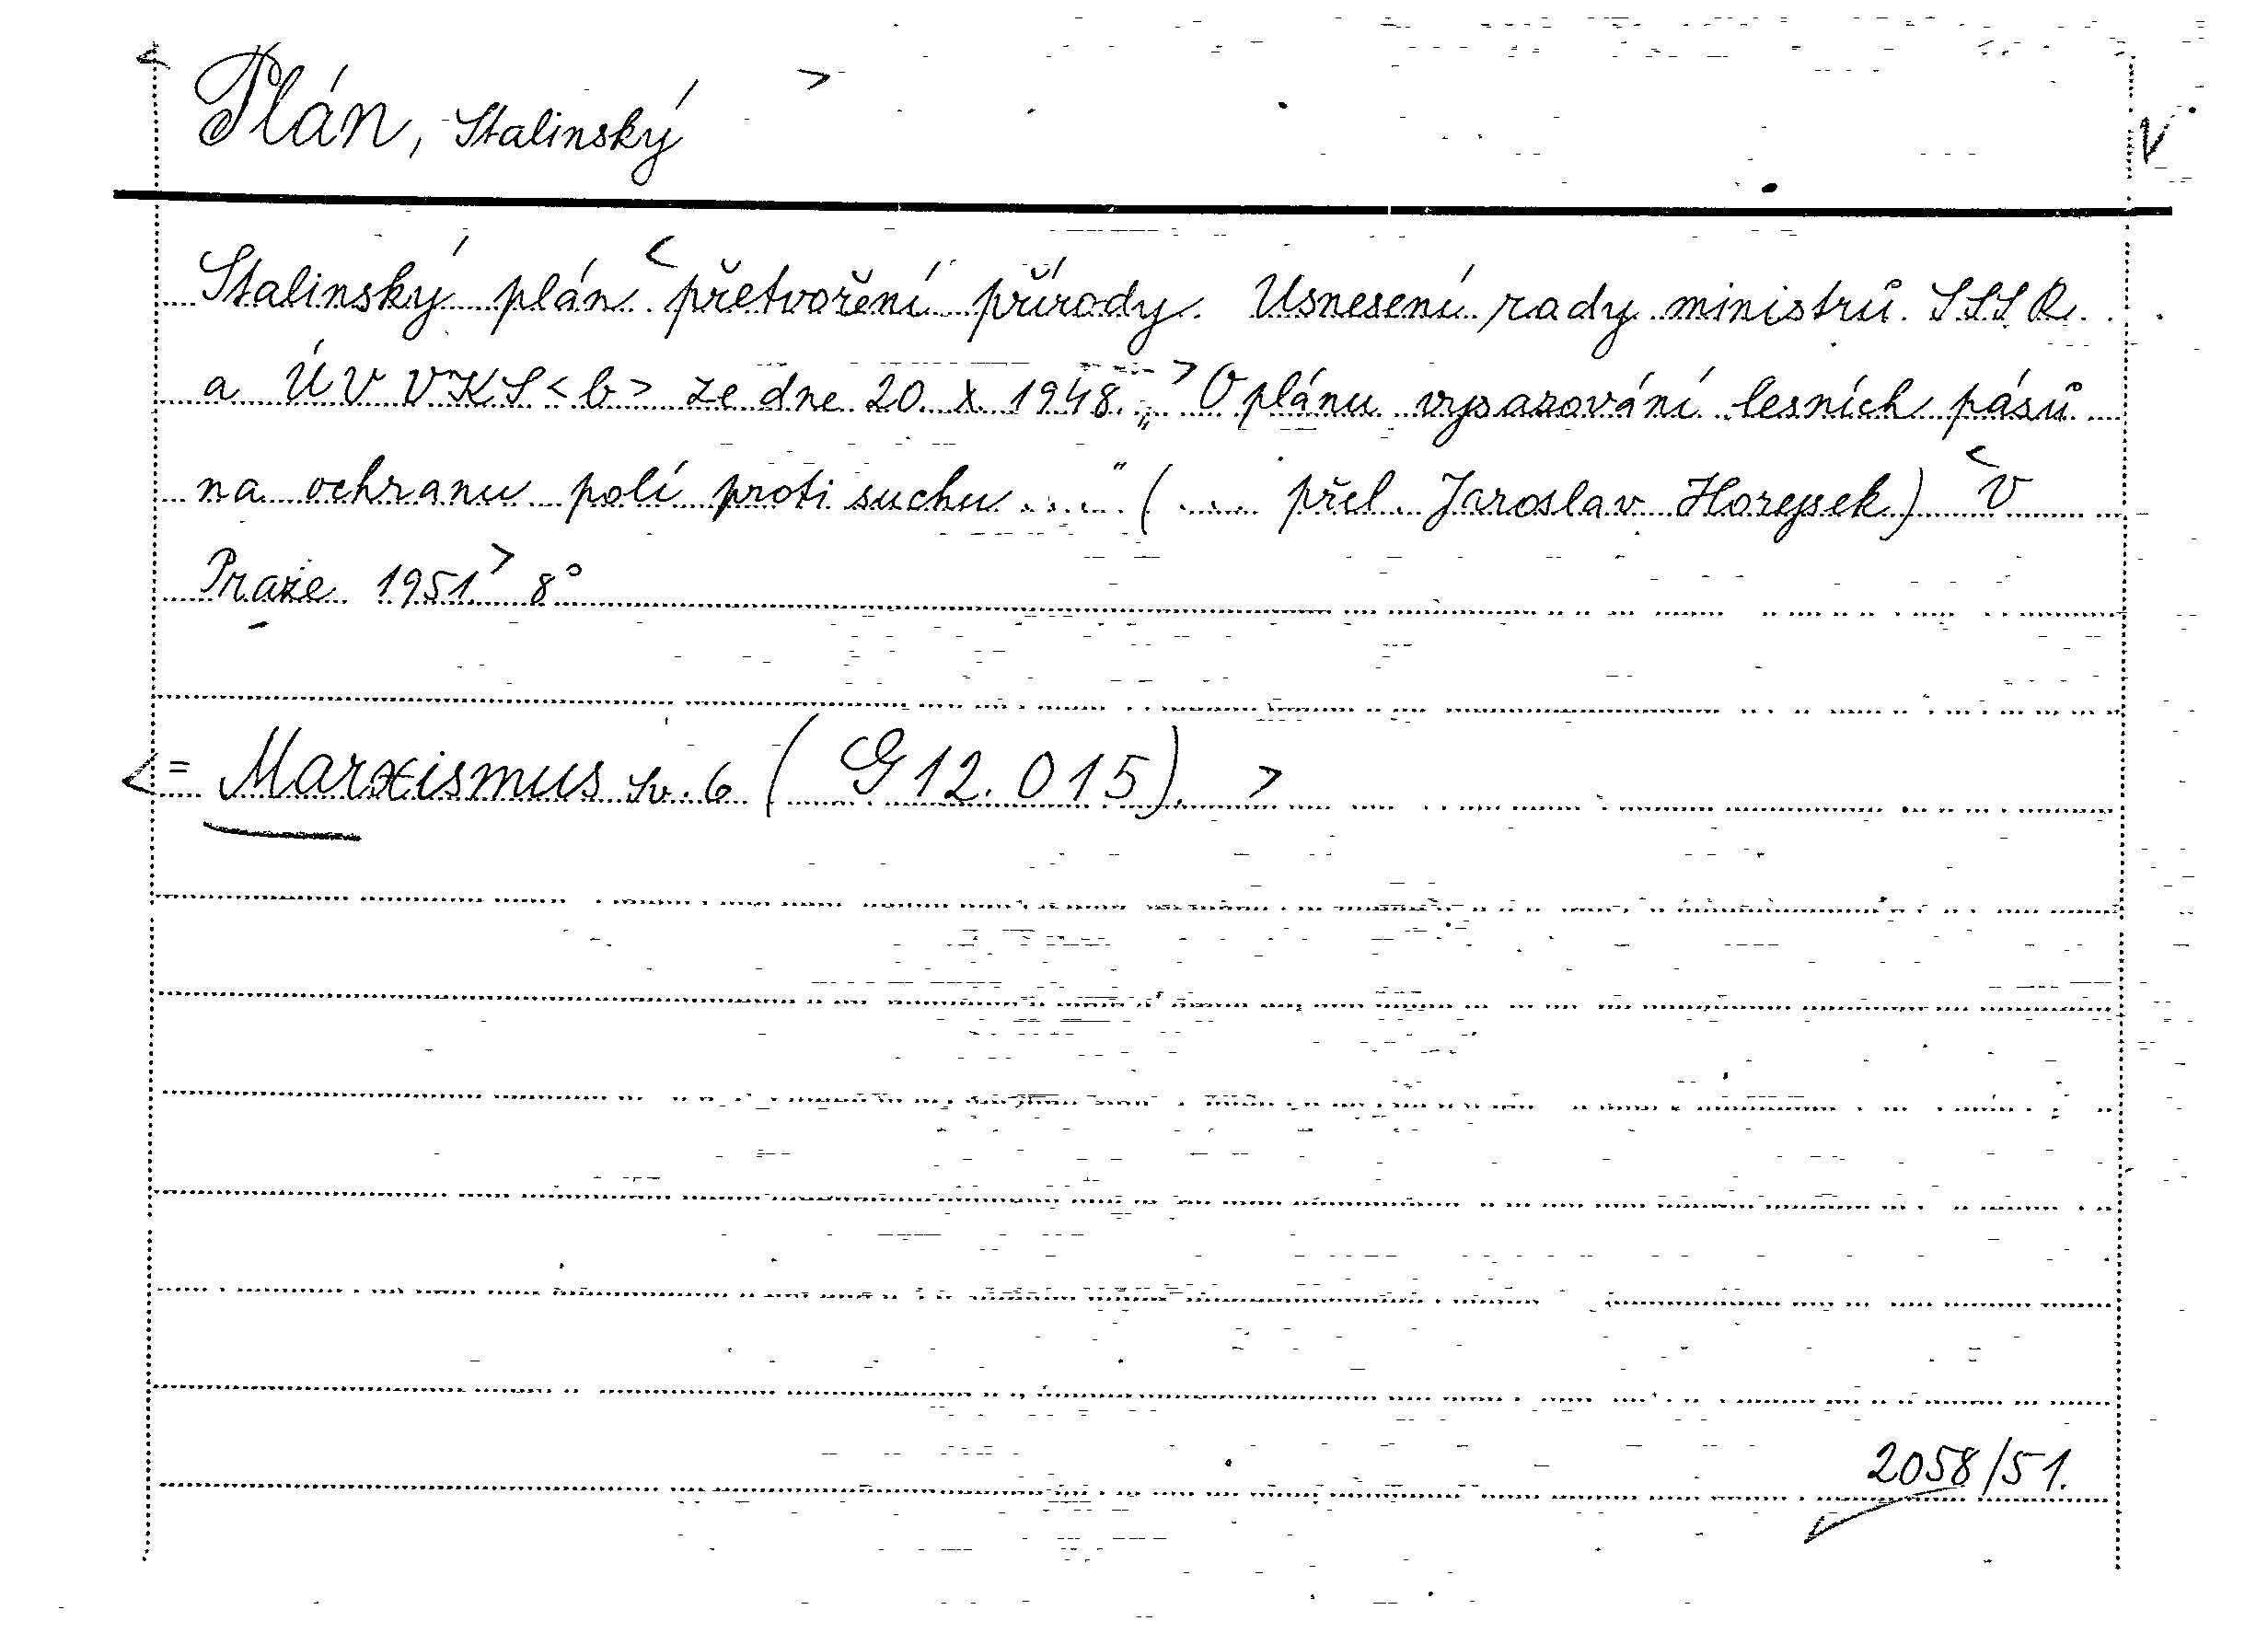 < Plán, Stalinský > V
Stalinský plán < přetvoření přírody. Usnesení rady ministrů SSSR
a ÚV VKS<b> ze dne 20. X. 1948. „ > O plánu vysazování lesních pásů
na ochranu polí proti suchu ...." ( .... přel. Jaroslav Horejsek) < V
Praze 1951 > 8°
< = Marxismus sv. 6 ( G 12.015). >
2058/51.